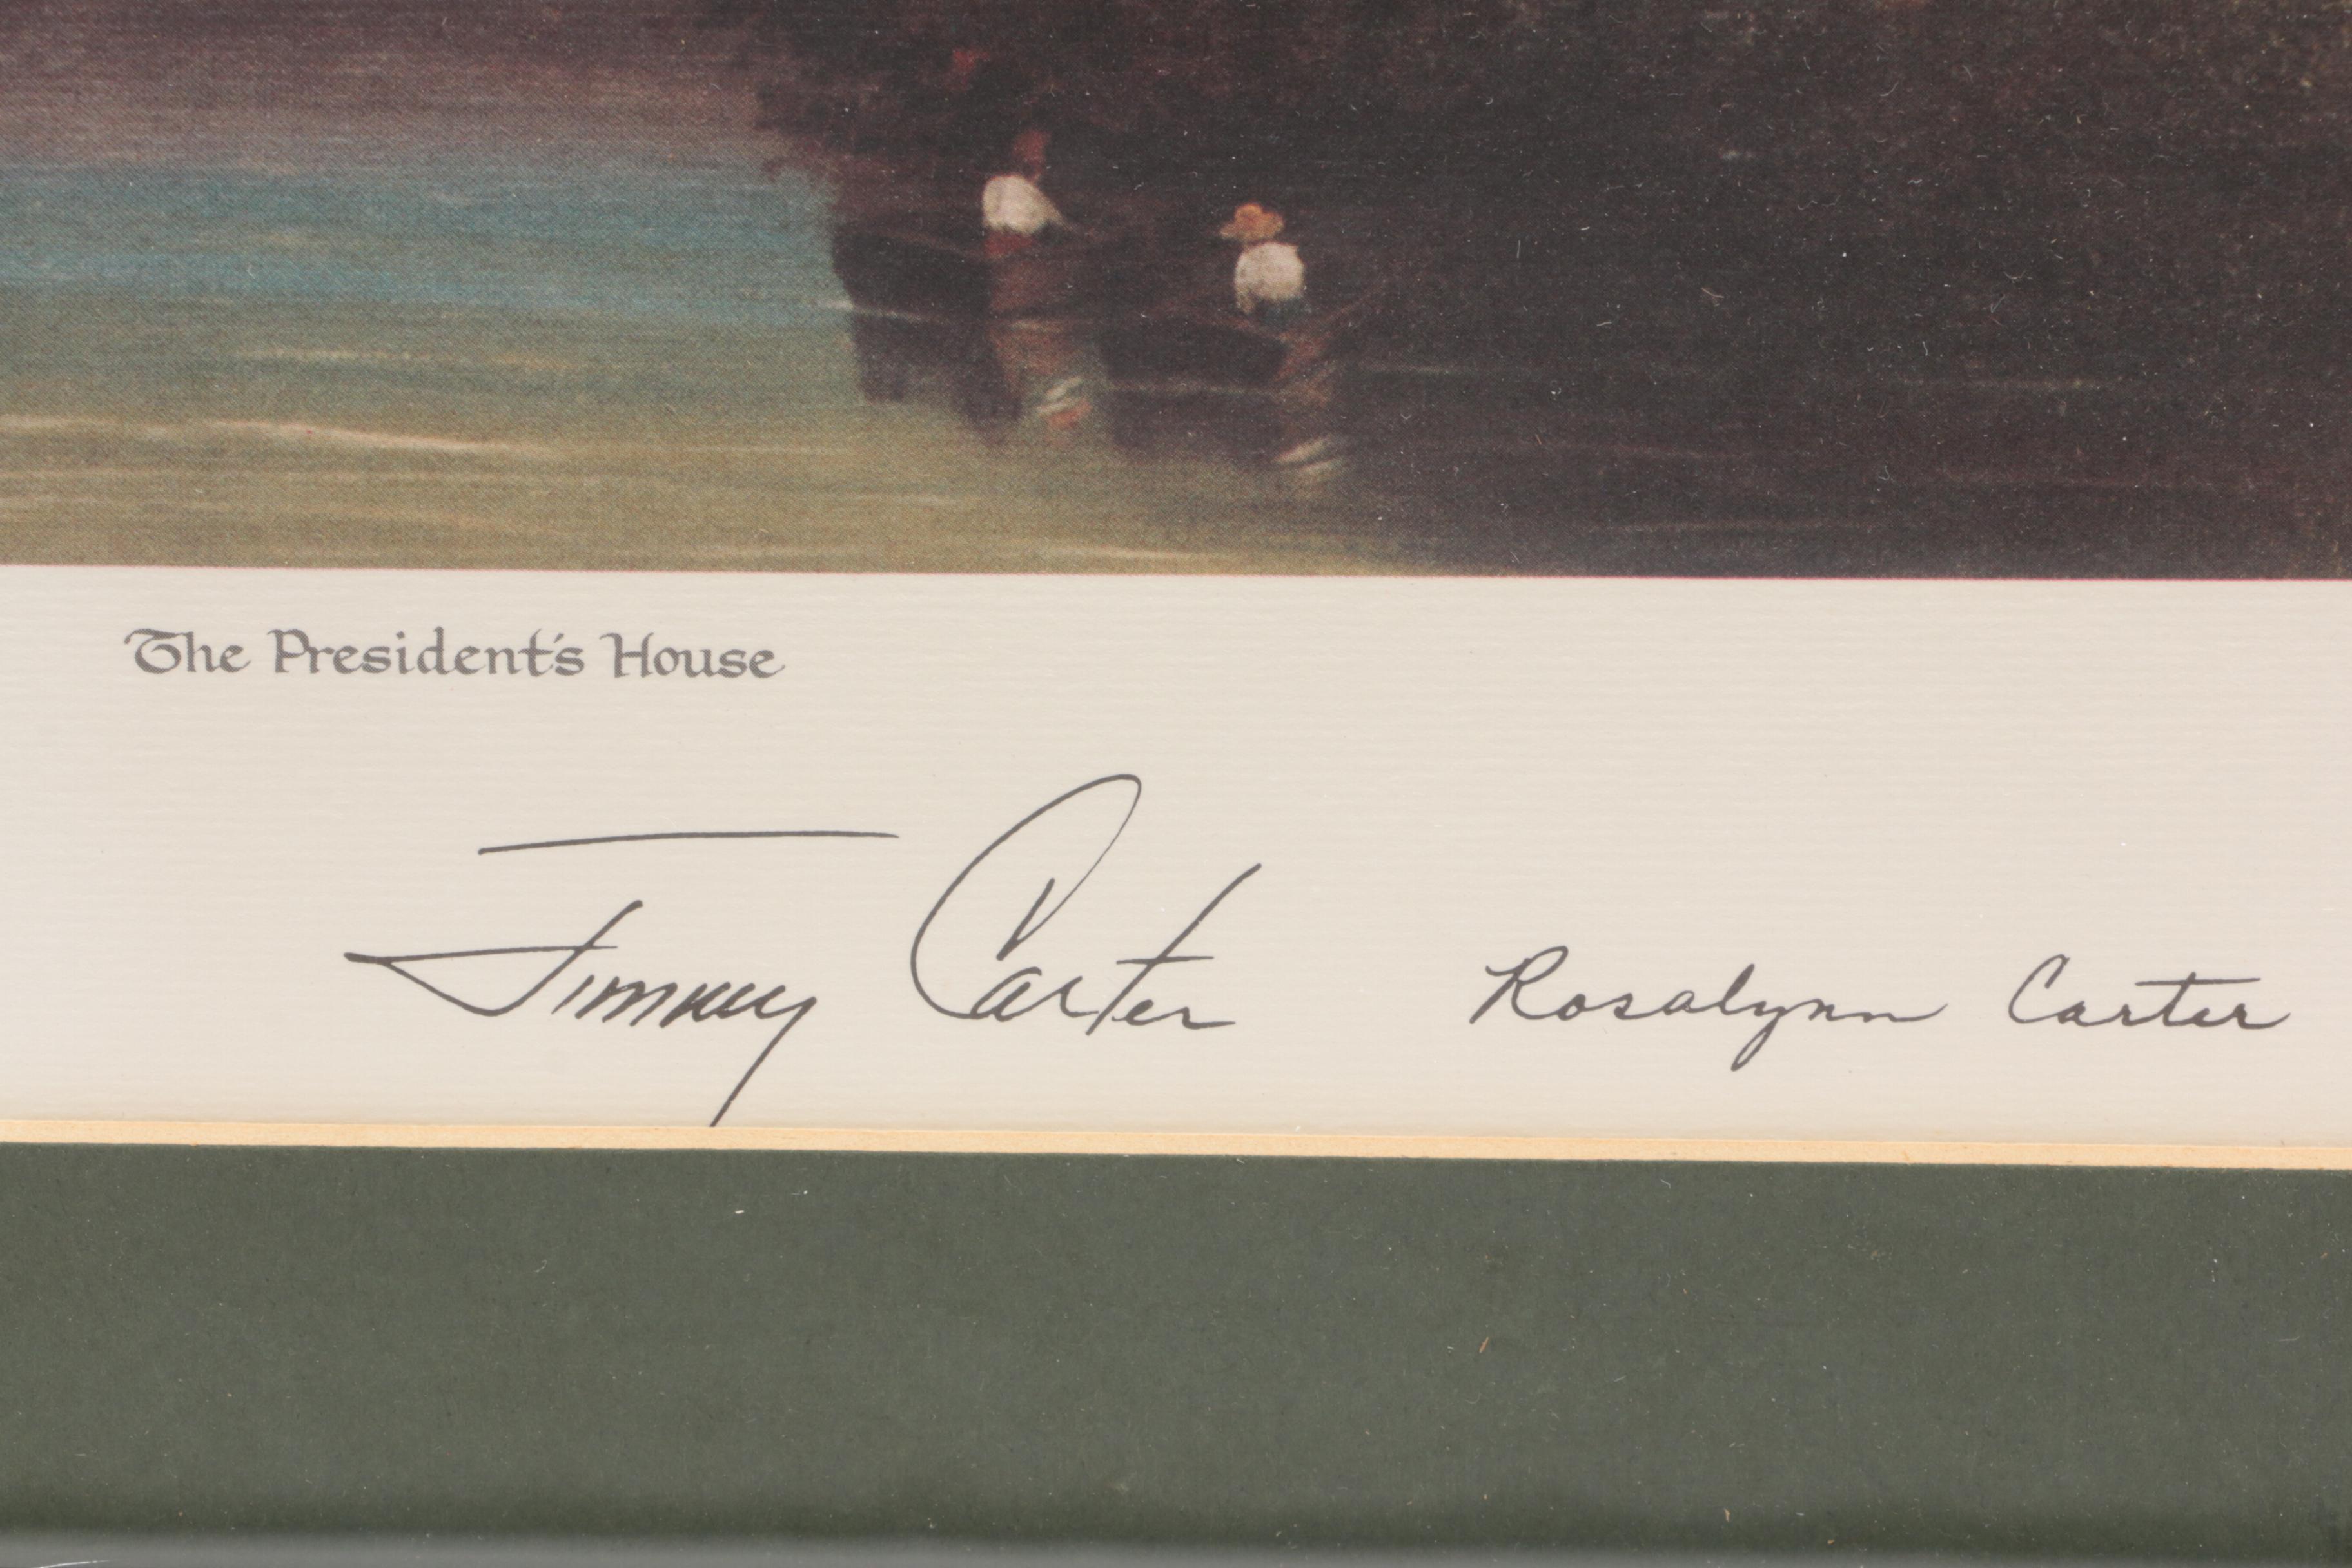 The President's House
Jimmy Carter Rosalynn Carter